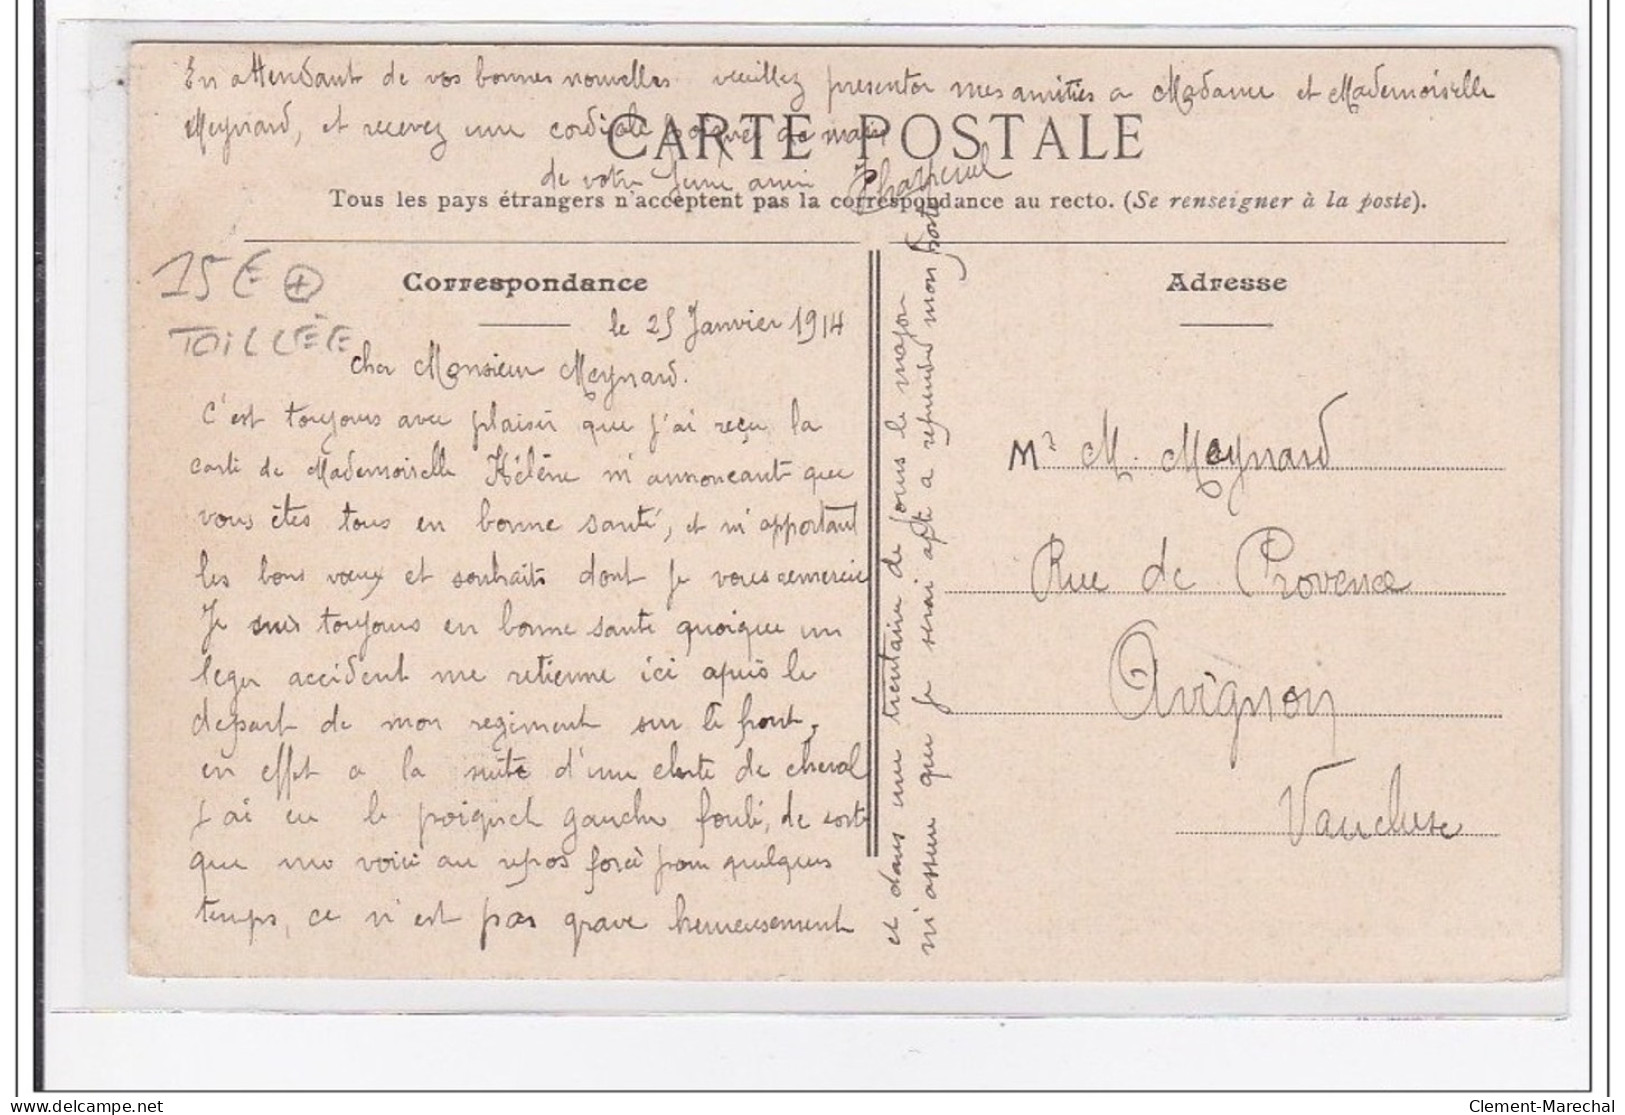 En attendant de vos bonnes nouvelles veuillez presenter mes amitiés a Madame et Mademoiselle
Meynard, et recevez une cordiale poignée de main
CARTE POSTALE
de votre jeune ami
Tous les pays étrangers n'acceptent pas la correspondance au recto. (Se renseigner à la poste).
15E +
TOILLÉE
Correspondance
le 25 Janvier 1914
cher Monsieur Meynard.
C'est toujours avec plaisir que j'ai reçu la
carte de Mademoiselle Hélène m'annonçant que
vous êtes tous en bonne santé, et m'apportant
les bons vœux et souhaits dont je vous remercie
Je suis toujours en bonne sante quoique un
leger accident me retienne ici apuis le
depart de mon regiment sur le front,
en effet a la suite d'une chute de cheval
j'ai eu le poignet gauche foulé, de sorte
que me voici au repos forcé pour quelques
temps, ce n'est pas grave heureusement
et dans une trentaine de jours le major
m'assure que je serai apte a reprendre mon poste
Adresse
Mr M. Meynard
Rue de Provence
Avignon
Vaucluse
Clement-Marechal